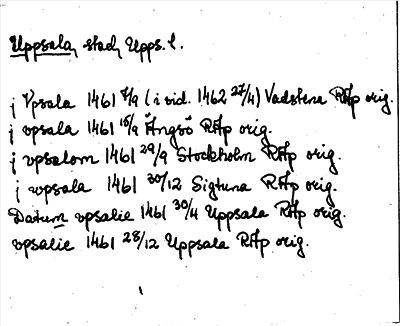 Uppsala, stad, Upps. l.
j Vpsala 1461 8/9 (i vid. 1462 27/4) Vadstena RAp orig.
j vpsala 1461 15/9 Ängsö RAp orig.
j vpsalom 1461 29/9 Stockholm RAp orig.
j vpsala 1461 30/12 Sigtuna RAp orig.
Datum vpsalie 1461 30/4 Uppsala RAp orig.
vpsalie 1461 28/12 Uppsala RAp orig.